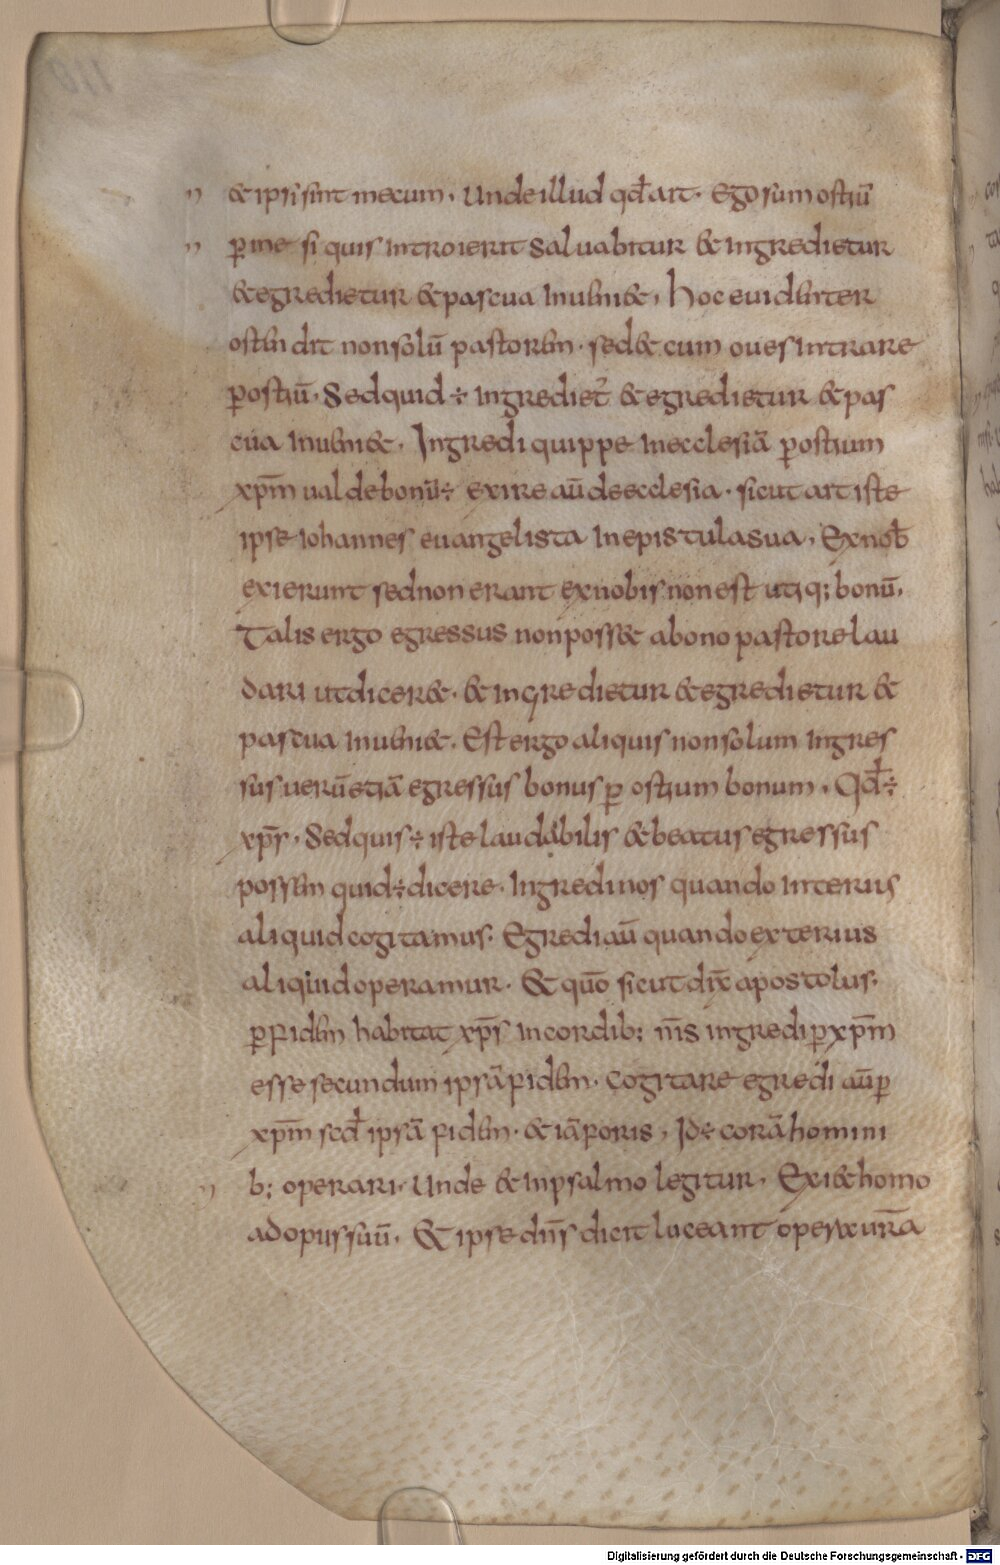 & ipsi sint mecum. Unde illud qđ ait. Ego sum ostiū
ꝑ me si quis introierit salvabitur & ingredietur
& egredietur & pascua inueni&. Hoc euidenter
ostendit non solū pastorem. sed & cum oues intrare
ꝑ ostiū. Sed quid ÷ ingrediet᷑ & egredietur & pas
cua inueni&. Ingredi quippe in ecclesiā ꝑ ostium
xp̄m ualde bonū ÷ exire aū de ecclesia. sicut ait iste
ipse iohannes euangelista in epistula sua. Ex nob̄
exierunt sed non erant ex nobis non est utiq; bonū.
Talis ergo egressus non poss& a bono pastore lau
dari ut dicer&. & ingredietur & egredietur &
pascua inueni&. Est ergo aliquis non solum ingres
sus uerū etiā egressus bonus ꝑ ostium bonum. Qđ ÷
xp̄s. Sed quis ÷ iste laudabilis & beatus egressus
possem quidē dicere. Ingredi nos quando interius
aliquid cogitamus. Egredi aū quando exterius
aliquid operamur. & quō sicut dix̄ apostolus.
ꝑ fidem habitat xp̄s in cordib; nr̄is ingredi ꝑ xp̄m
esse secundum ipsā fidem. cogitare egredi aū ꝑ
xp̄m scđ ipsā fidem. & iā foris, Id ÷ corā homini
b; operari. Unde & in psalmo legitur. Exi& homo
ad opus suū. & ipse dn̄s dicit luceant opera ur̄a
Digitalisierung gefördert durch die Deutsche Forschungsgemeinschaft - DFG